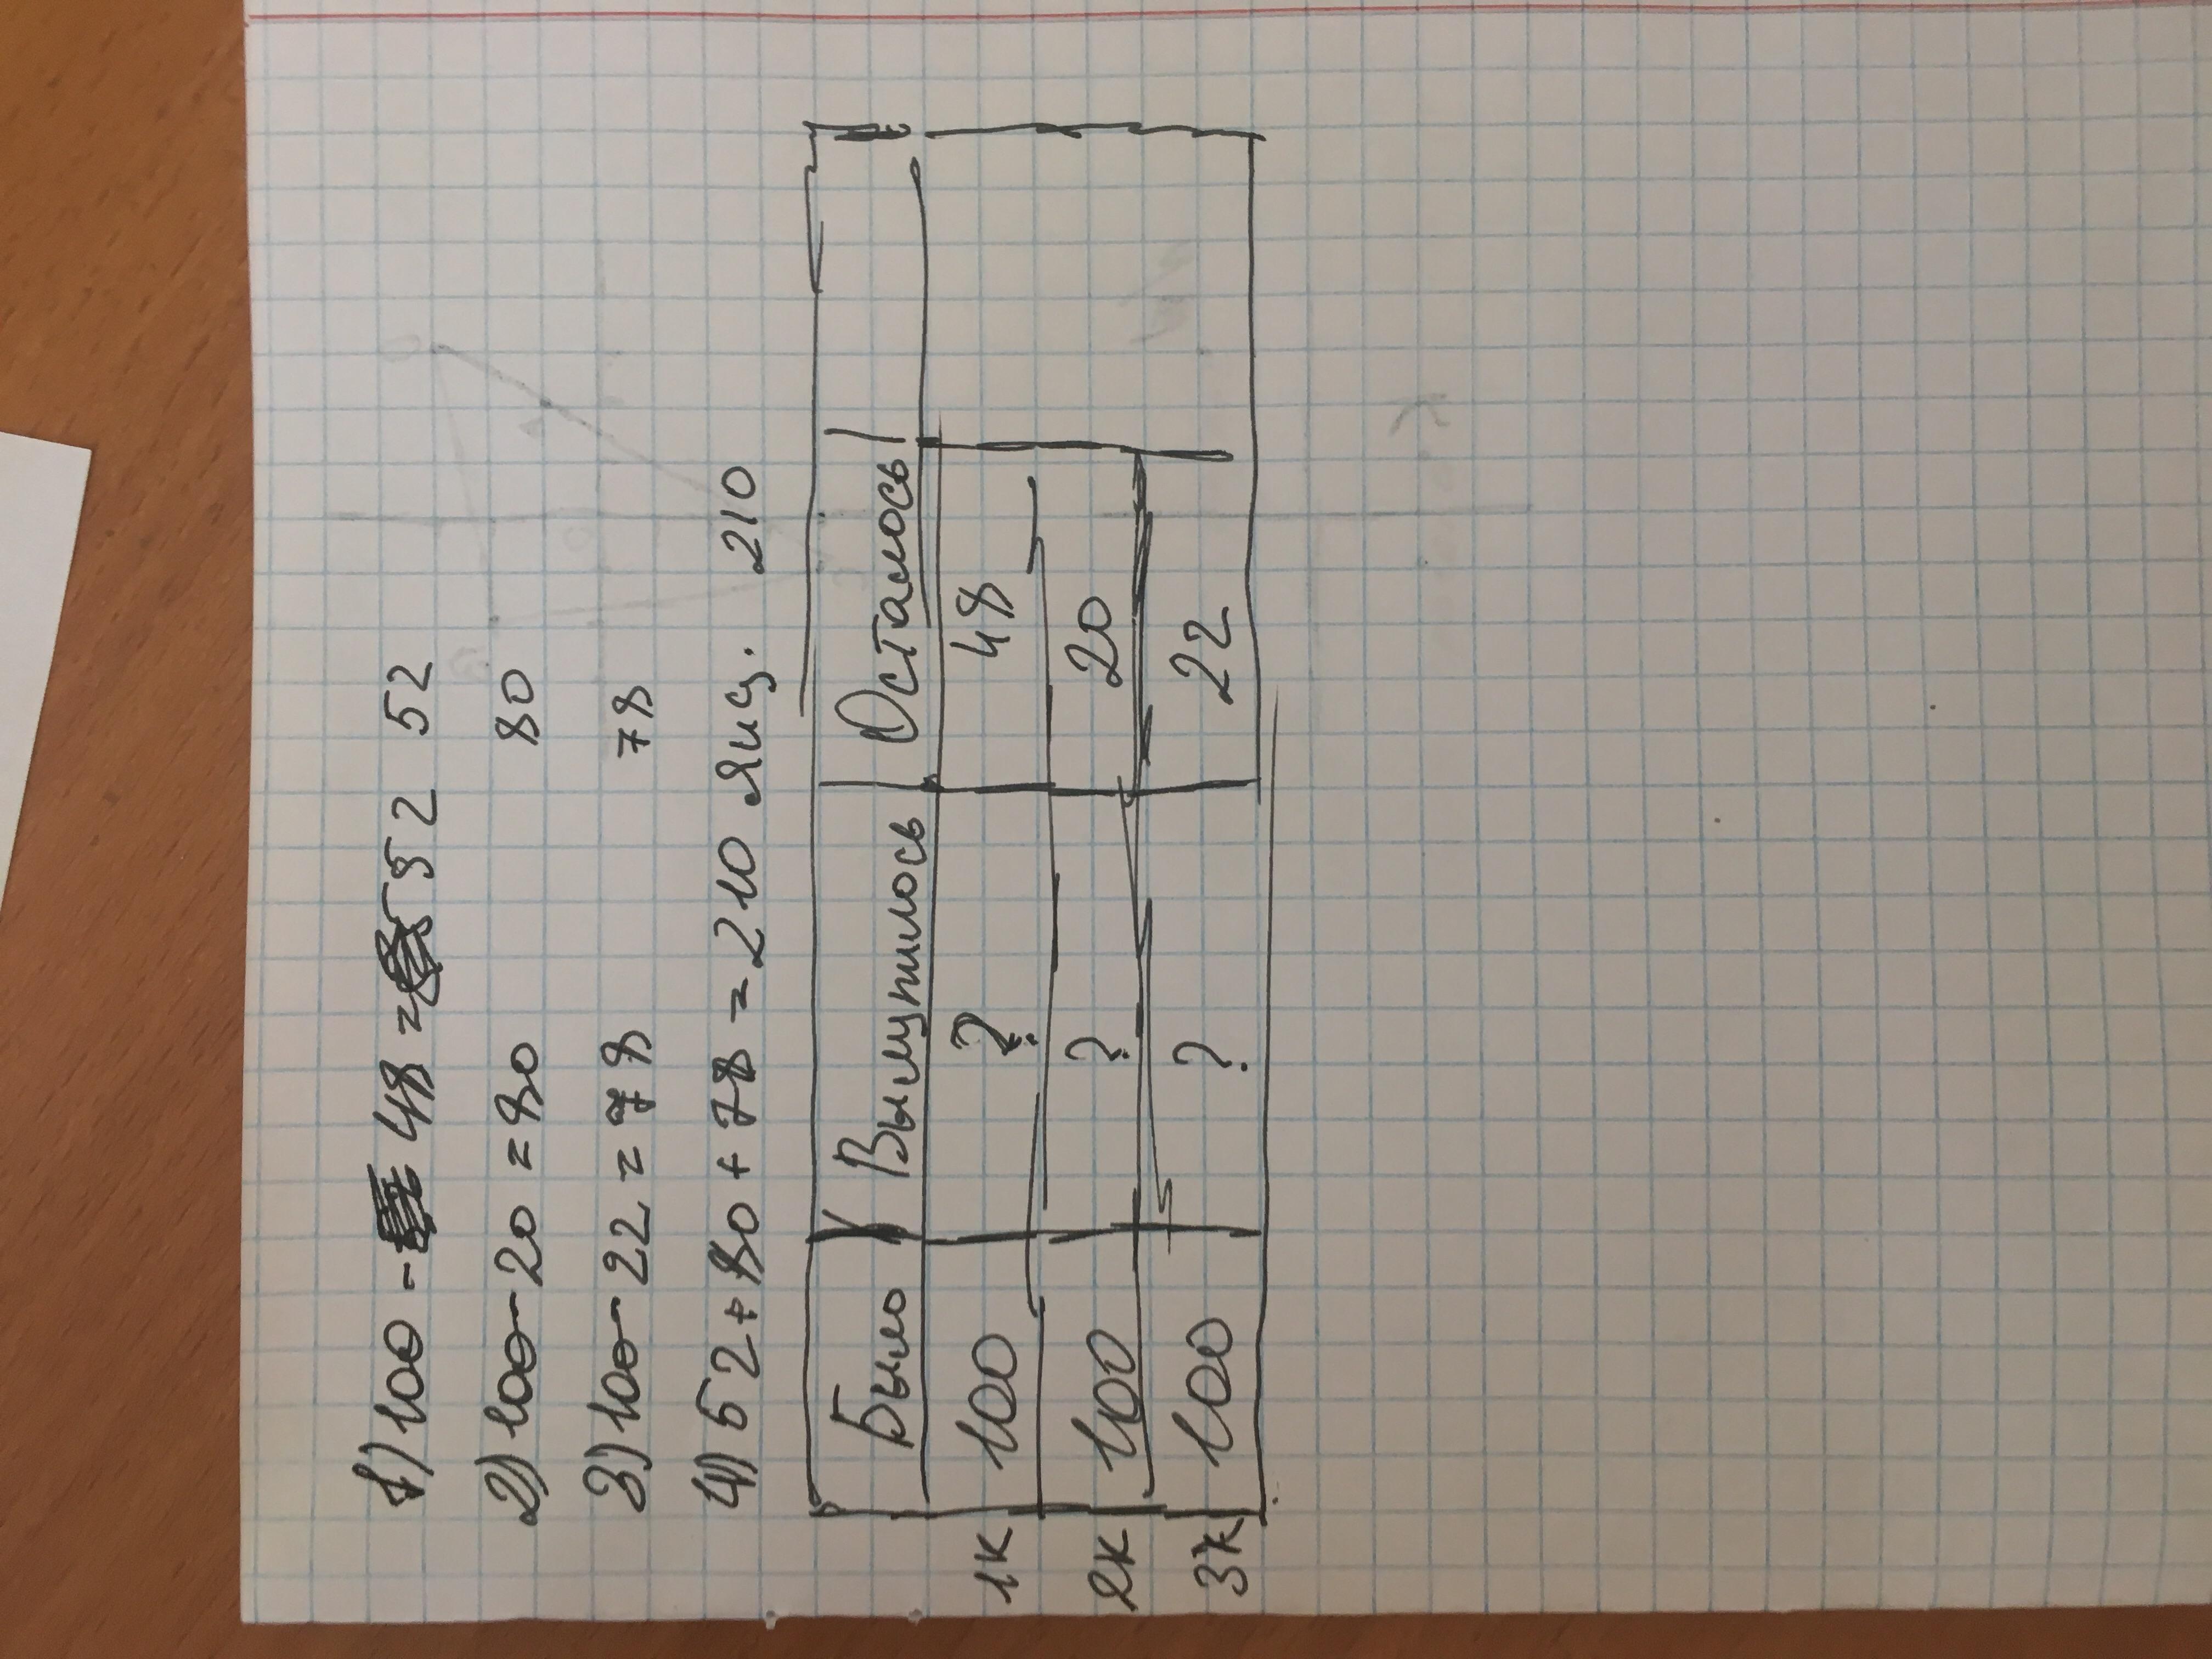 1) 100 - 48 = 52 52
2) 100 - 20 = 80 80
3) 100 - 22 = 78 78
4) 52 + 80 + 78 = 210 яиц. 210
Было Вылупилось Осталось
1к 100 ? 48
2к 100 ? 20
3к 100 ? 22